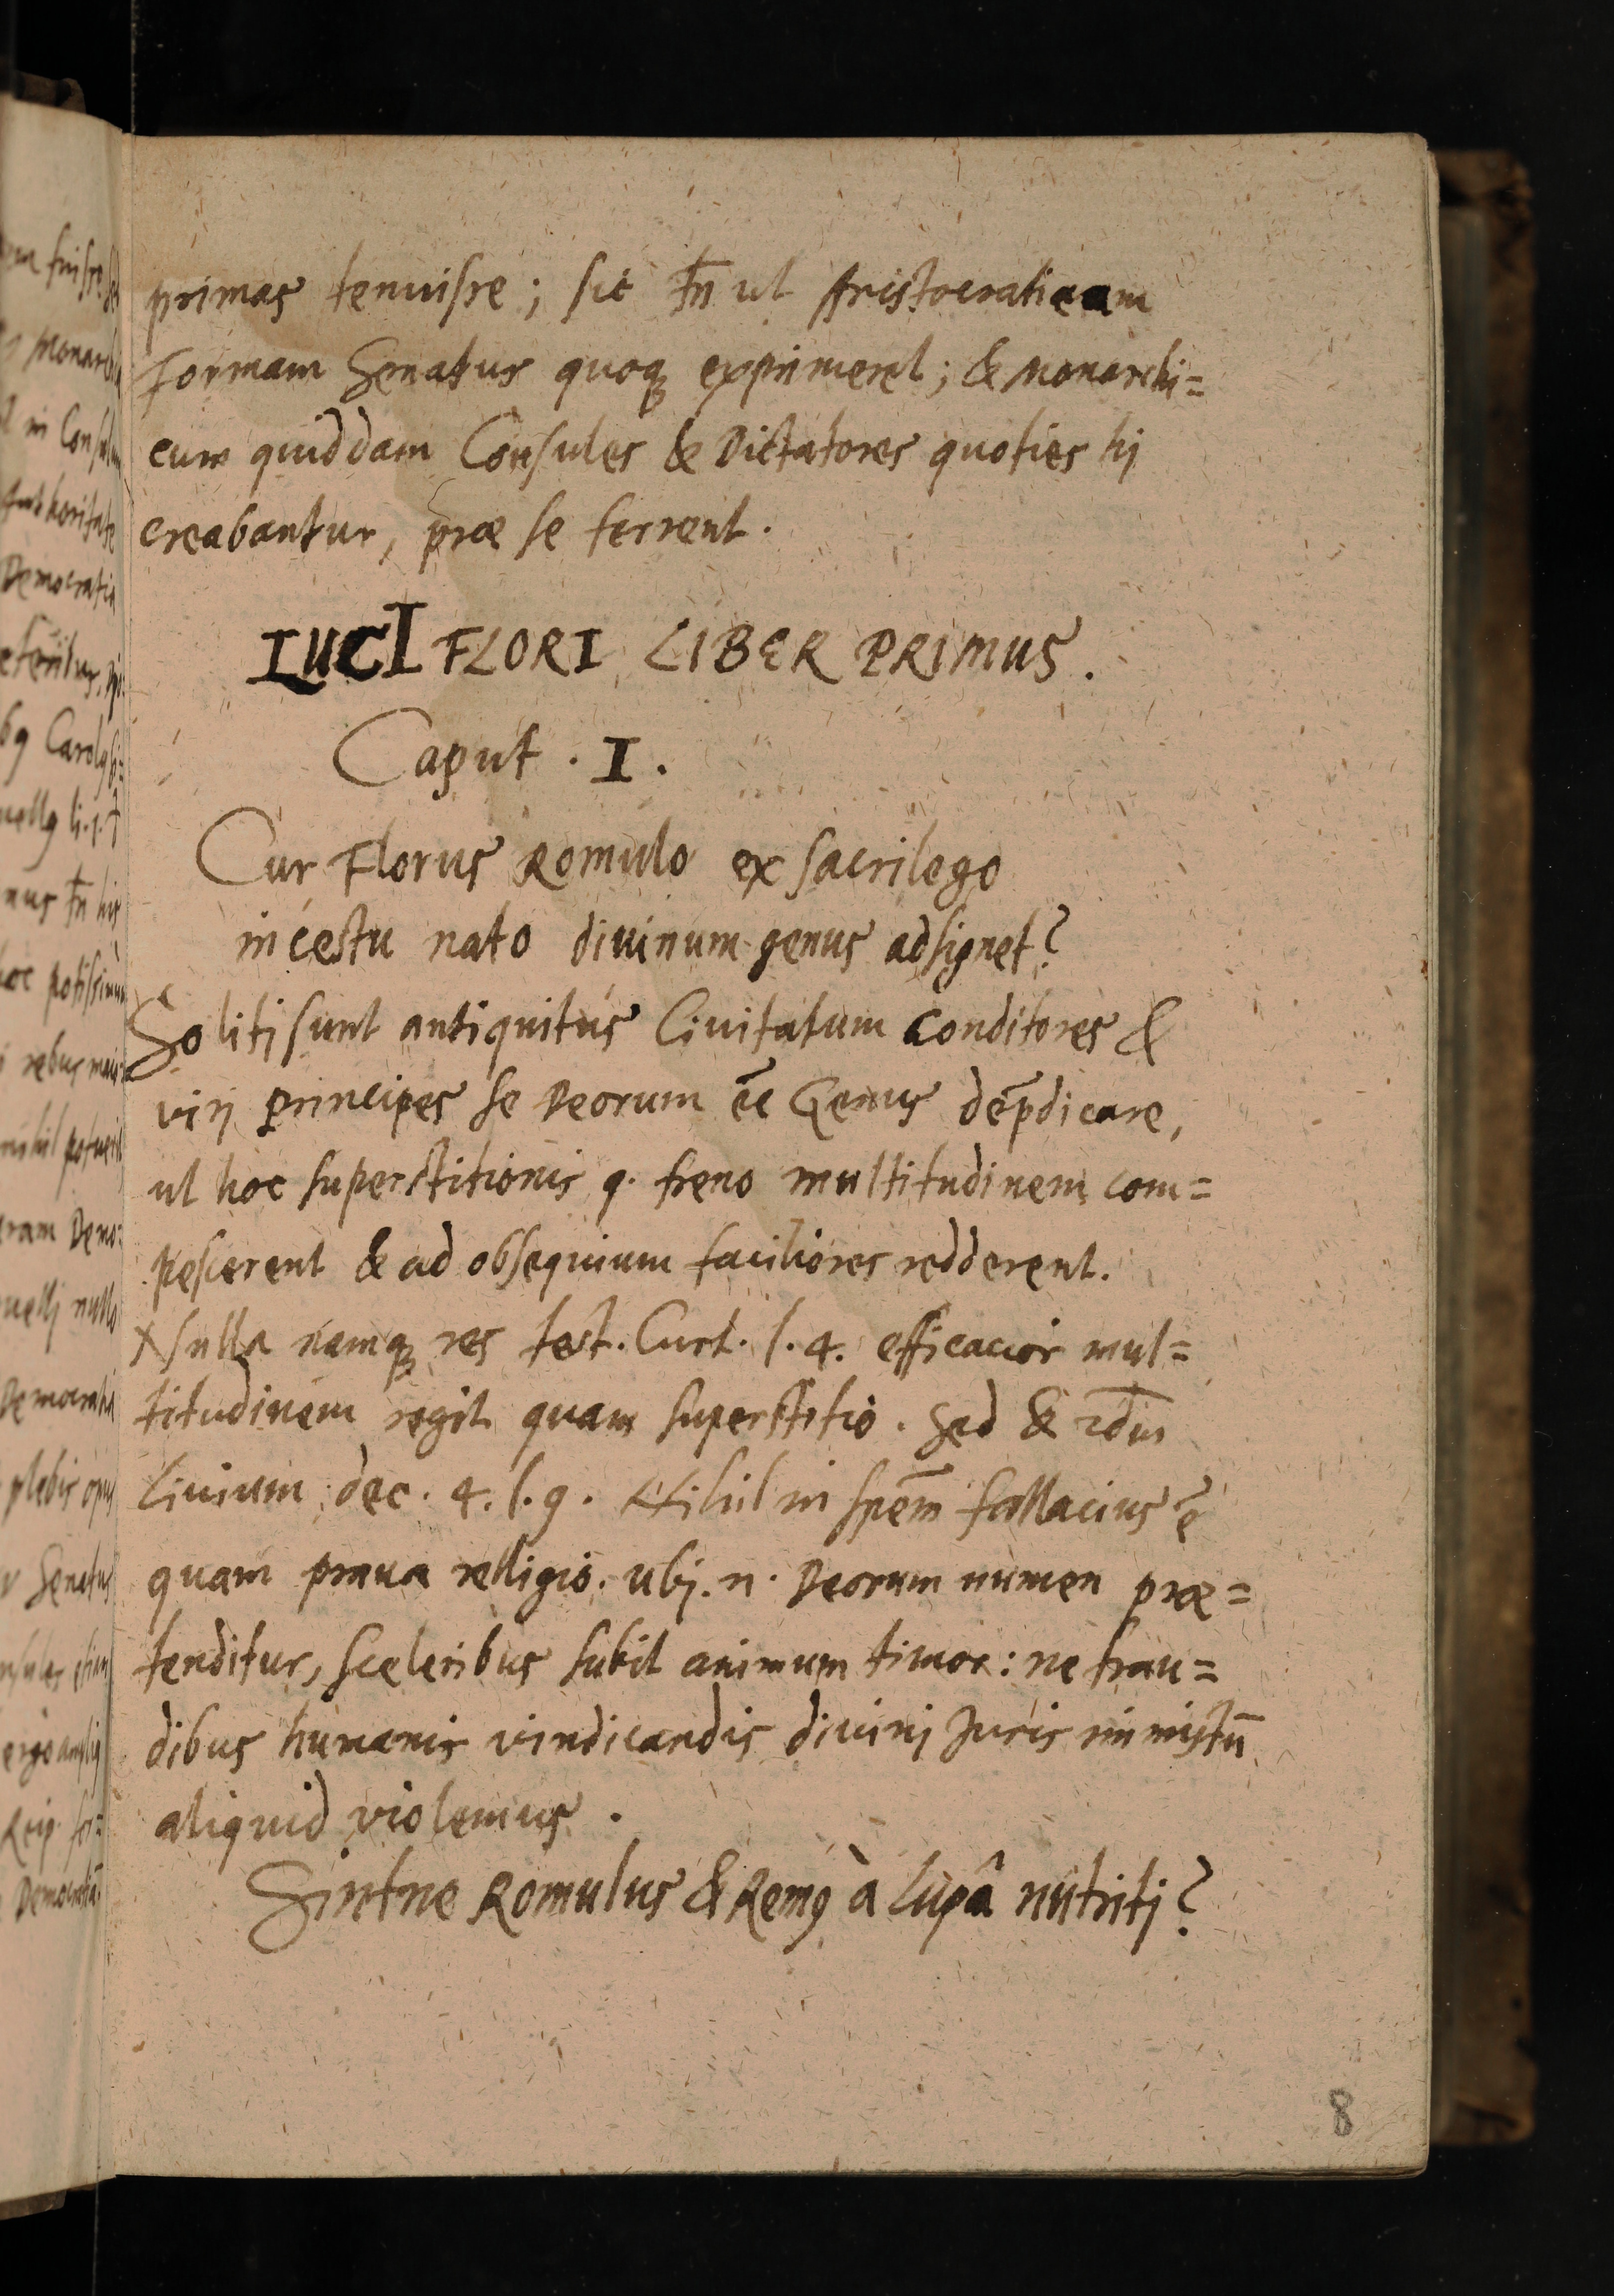 primas tenuisse; sic tn̄ ut Aristocraticam
formam Senatus quoq̨ exprimeret; & Monarchi=
cum quiddam Consules & Dictatores quoties hj
creabantur, præ se ferrent.
LUCI FLORI LIBER PRIMUS.
Caput . I .
Cur Florus Romulo ex sacrilego
incestu nato diuinum genus adsignet?
Solitj sunt antiquitùs Ciuitatum Conditores &
virj principes se Deorum ēe Genus dep̄dicare,
ut hoc superstitionis q. freno multitudinem com=
pescerent & ad obsequium faciliores redderent.
Nulla namq̨ res test. Curt. l. 4. efficacior mul=
titudinem regit quam superstitio. Sed &
Liuium dec. 4. l. 9. Nihil in spēm fallacius ē
quam praua relligio. ubj. n. Deorum numen præ=
tenditur, sceleribus subit animum timor: ne frau=
dibus humanis vindicandis diuinj Juris immistū
aliquid violemus.
Sintne Romulus & Remꝰ à lupâ nutritj?
8